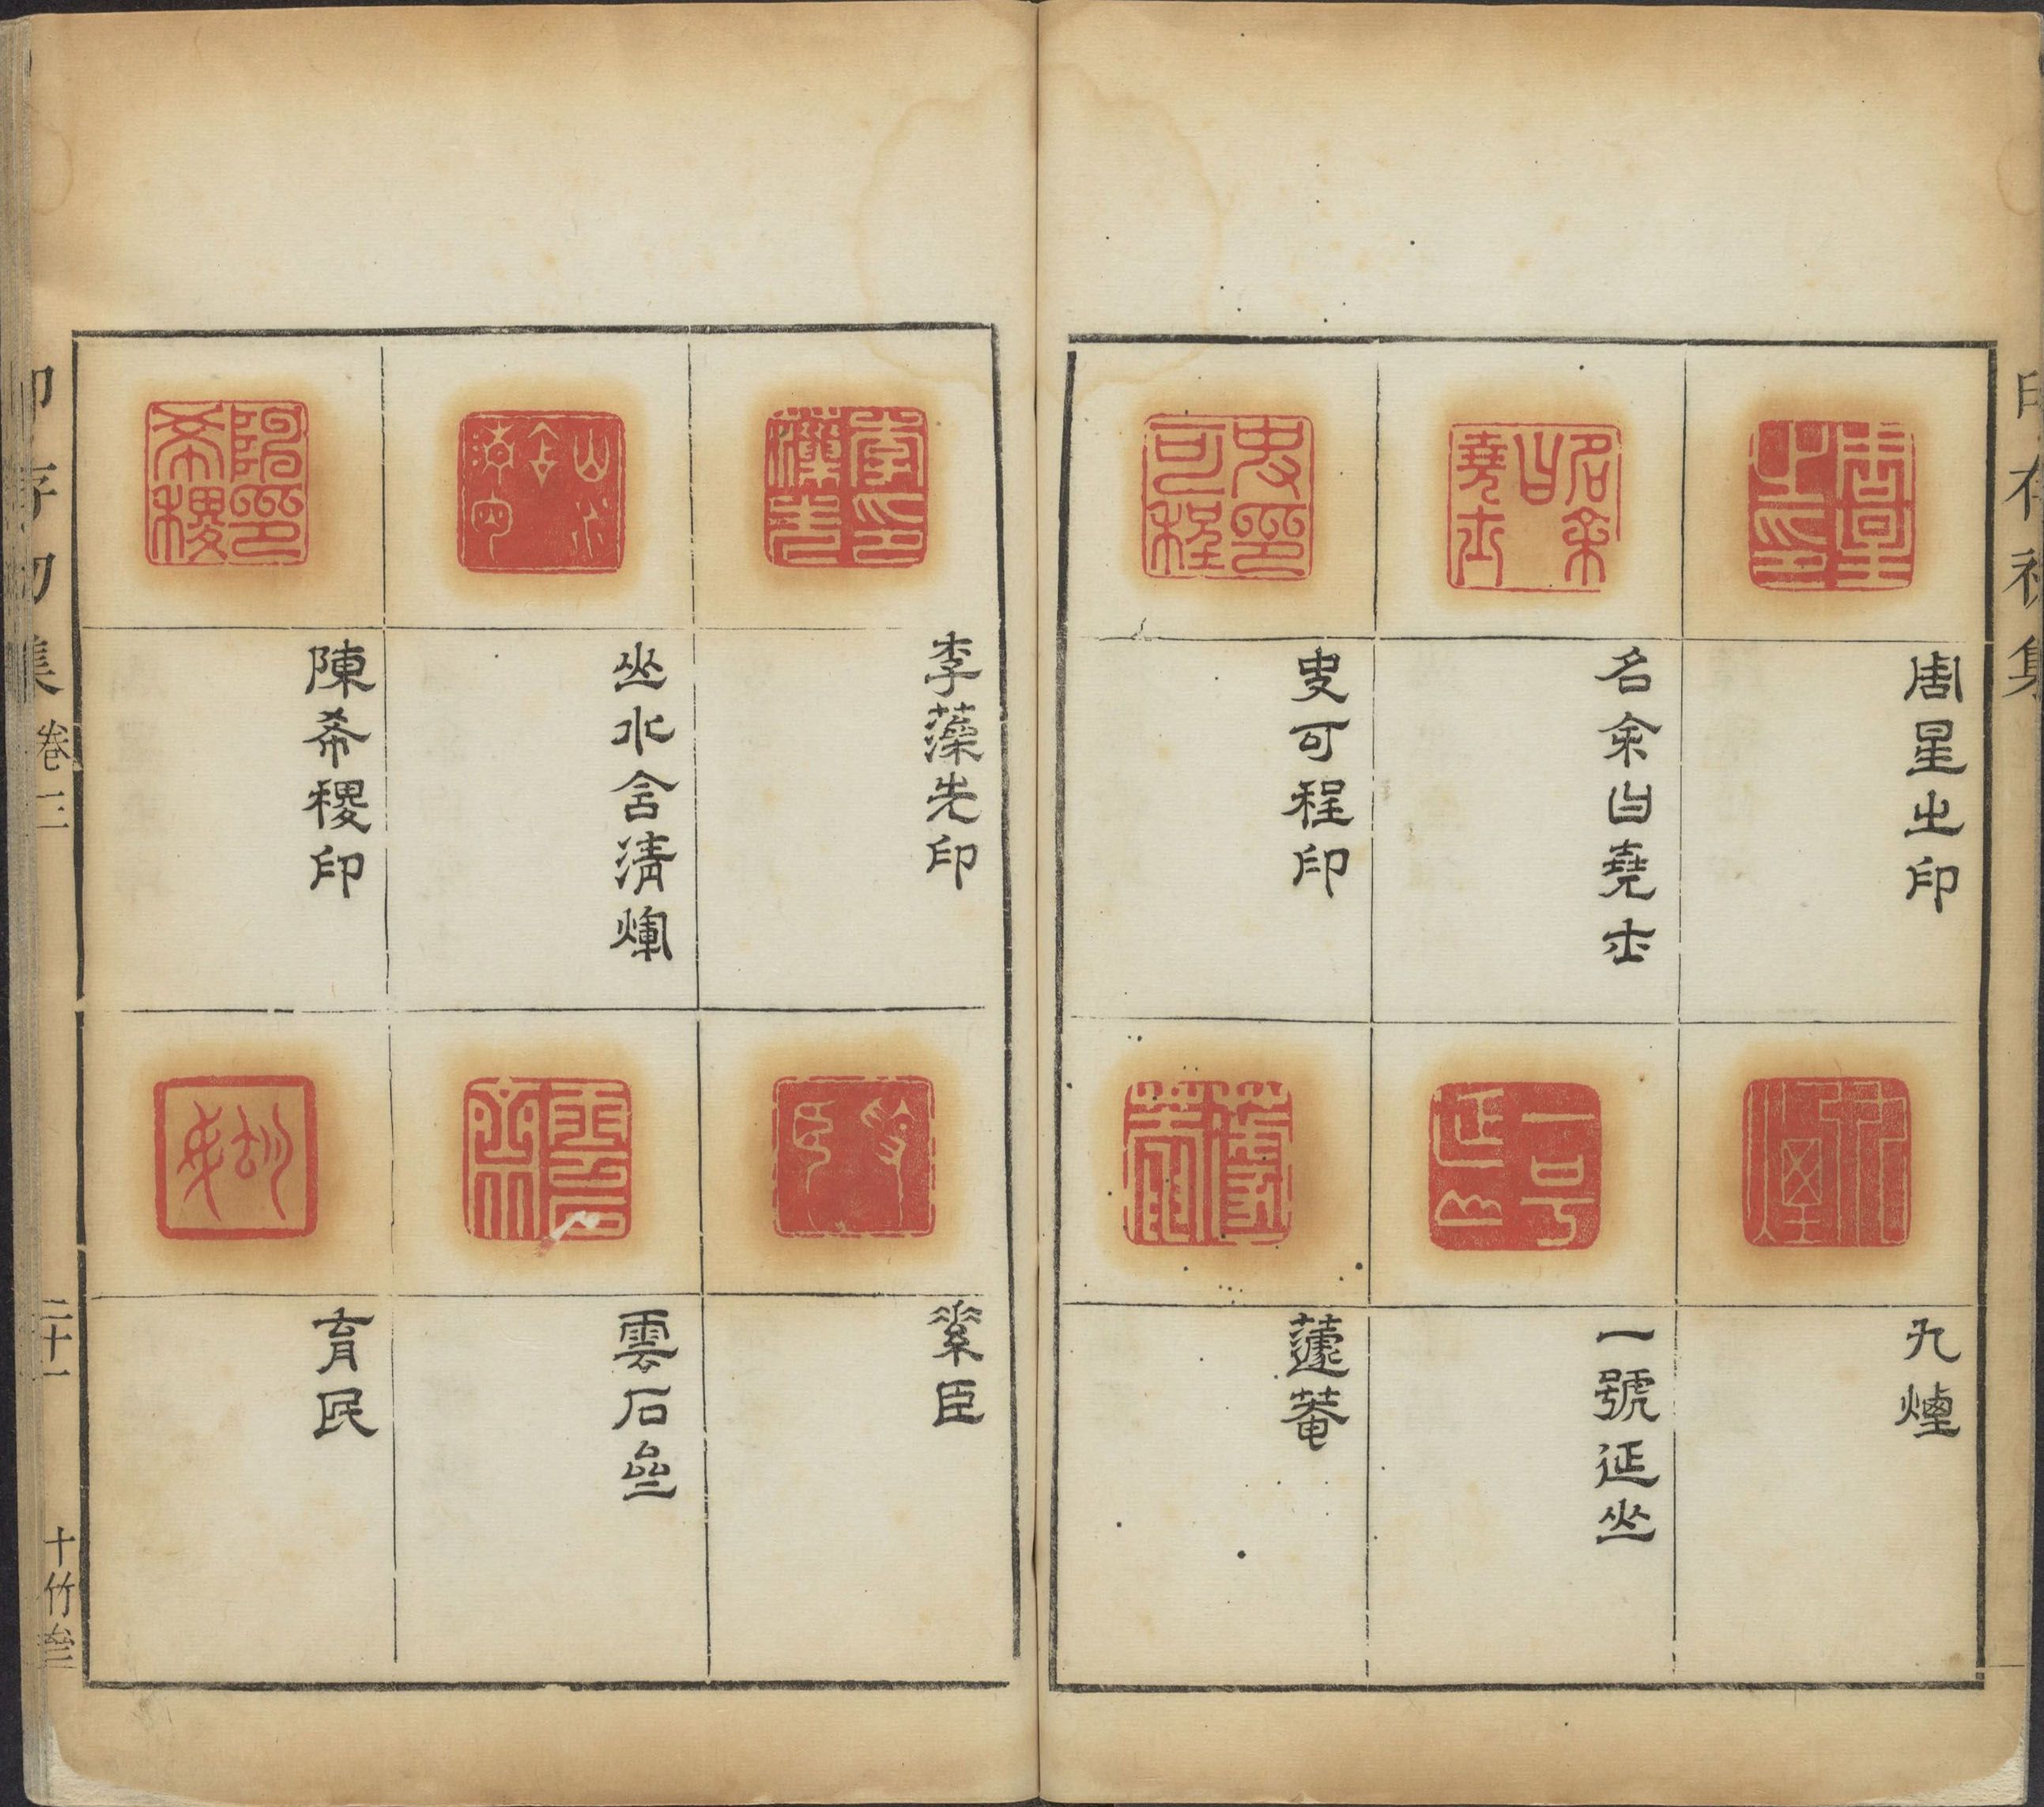 周星之印
名余曰堯士
史可程印
九煙
一號延㘴
蘧菴
李藻先印
山水含清暉
陳希稷印
素臣
雲石齋
育民
印存初集
卷三
二十一
十竹齋